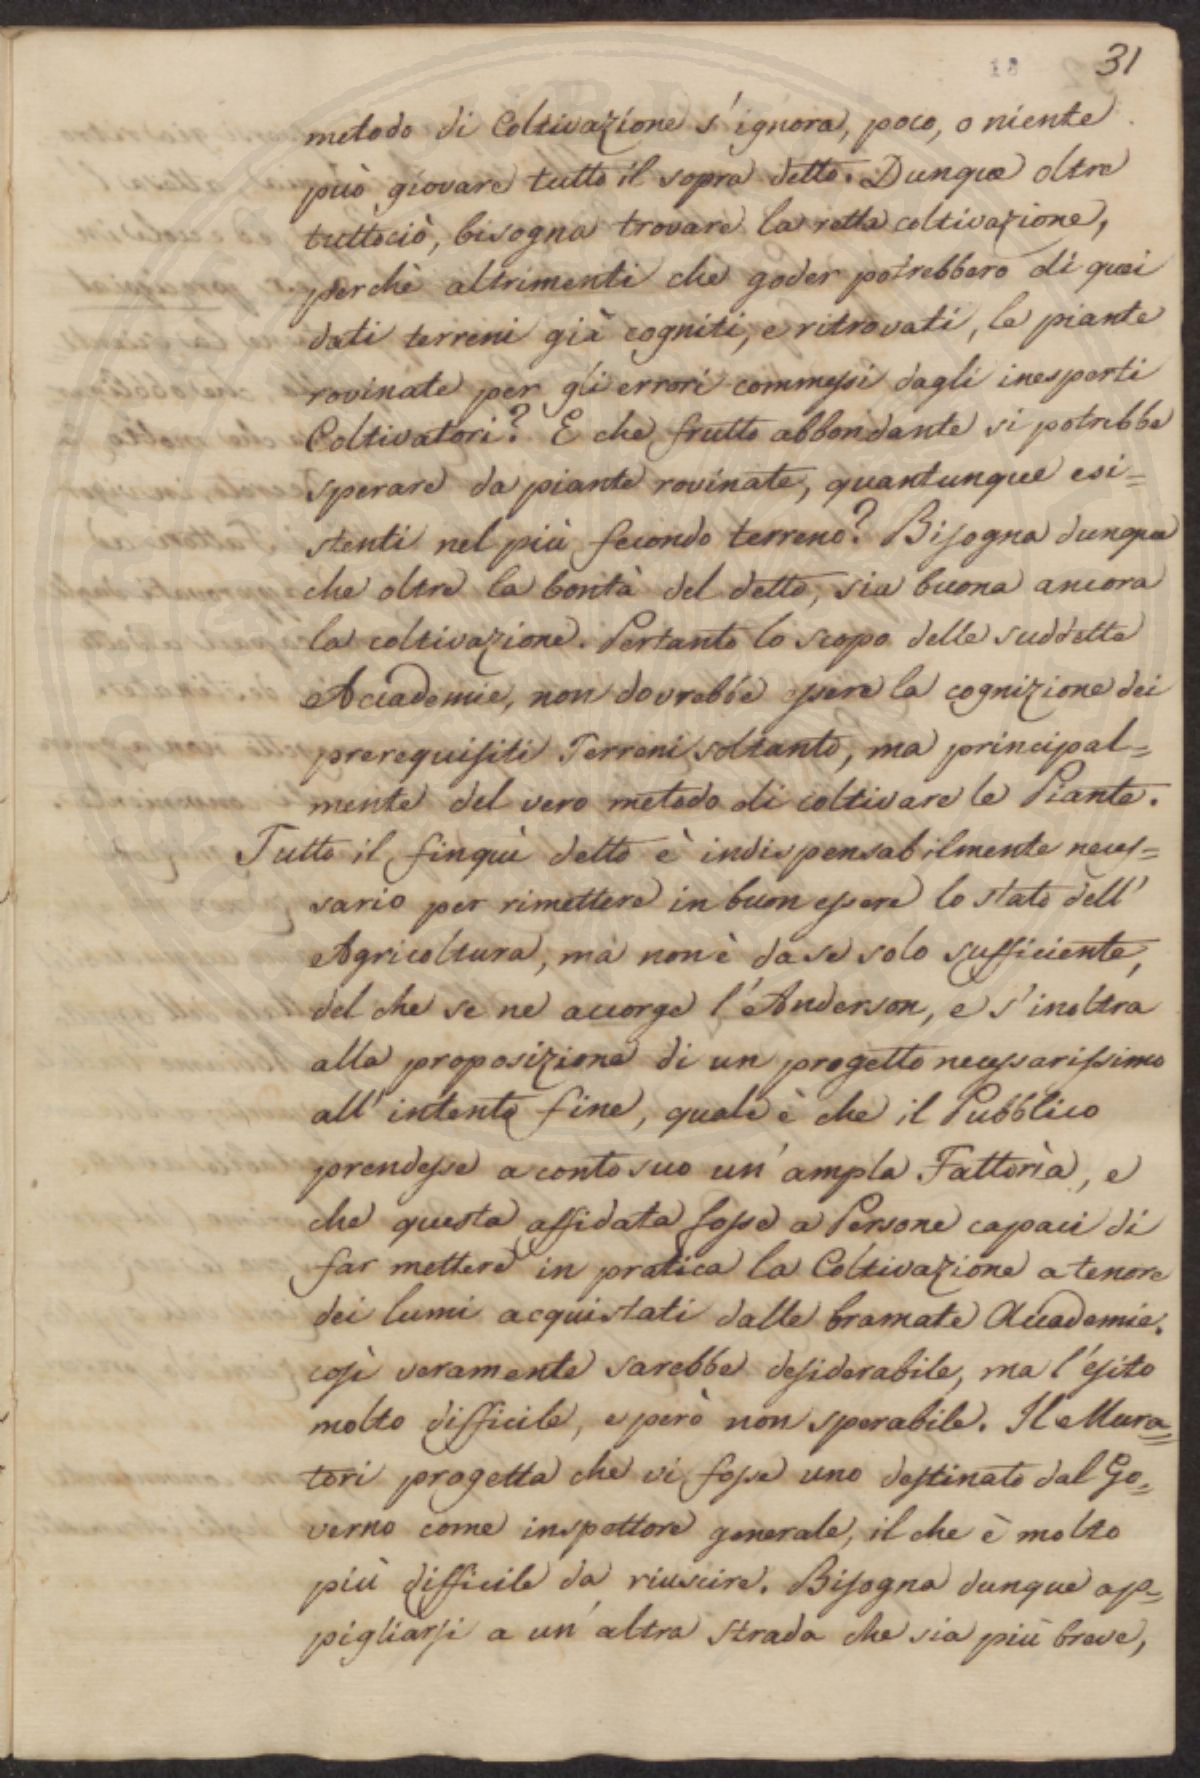 18 31
metodo di Coltivazione s'ignora, poco, o niente
può giovare tutto il sopra detto. Dunque oltre
tuttociò, bisogna trovare la retta coltivazione,
perchè altrimenti che goder potrebbero di quei
dati terreni già cogniti, e ritrovati, le piante
rovinate per gli errori commessi dagli inesperti
Coltivatori? E che frutto abbondante si potrebbe
sperare da piante rovinate, quantunque esi=
stenti nel più fecondo terreno? Bisogna dunque
che oltre la bontà del detto, sia buona ancora
la coltivazione. Pertanto lo scopo delle suddette
Accademie, non dovrebbe essere la cognizione dei
prerequisiti Terreni soltanto, ma principal=
mente del vero metodo di coltivare le Piante.
Tutto il finquì detto è indispensabilmente neces=
sario per rimettere in buon essere lo stato dell'
Agricoltura, mà non è da se solo sufficiente,
del che se ne accorge l'Anderson, e s'inoltra
alla proposizione di un progetto necessarissimo
all'intento fine, quale è che il Pubblico
prendesse a conto suo un'ampla Fattorìa, e
che questa affidata fosse a Persone capaci di
far mettere in pratica la Coltivazione a tenore
dei lumi acquistati dalle bramate Accademie.
così veramente sarebbe desiderabile, ma l'esito
molto difficile, e però non sperabile. Il Mura=
tori progetta che vi fosse uno destinato dal Go=
verno come inspettore generale, il che è molto
più difficile da riuscire. Bisogna dunque ap=
pigliarsi a un'altra strada che sia più breve,